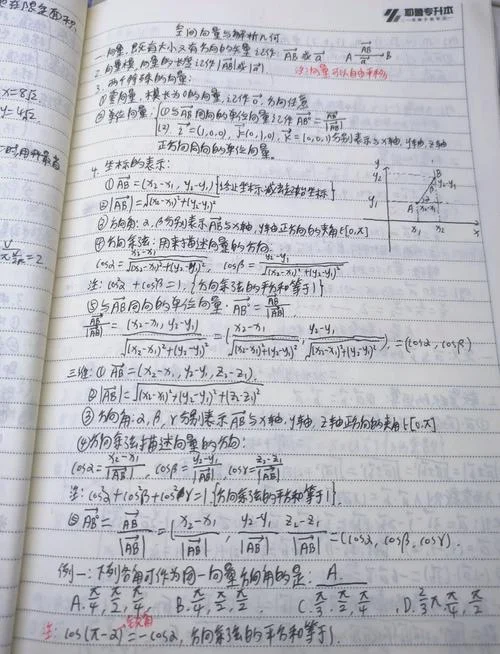 和鲁专升本
空间向量与解析几何
一.向量,既有大小又有方向的矢量记作: AB或a
注:向量可以自由平移
2.向量模,向量的长度记作|AB|或|a|.
3.两个特殊的向量:
①零向量,模长为0的向量,记作0,方向任意
②单位向量: ①与AB同向的单位向量记作AB°=AB/|AB|
(2). i=(1,0,0), j=(0,1,0), k=(0,0,1)分别表示与x轴,y轴,z轴
正方向同向的单位向量.
4.坐标的表示:
①AB=(x₂-x₁, y₂-y₁)
②|AB|=√(x₂-x₁)²+(y₂-y₁)²
③方向角:α,β分别表示AB与x轴,y轴正方向的夹角∈[0,π]
④方向余弦:用来描述向量的方向.
cosα=x₂-x₁/√(x₂-x₁)²+(y₂-y₁)², cosβ=y₂-y₁/√(x₂-x₁)²+(y₂-y₁)²
注: cos²α+cos²β=1,{方向余弦的平方和等于1}
⑤与AB同向的单位向量.AB°=AB/|AB|
AB/|AB|=(x₂-x₁, y₂-y₁)/√(x₂-x₁)²+(y₂-y₁)²=(x₂-x₁/√(x₂-x₁)²+(y₂-y₁)², y₂-y₁/√(x₂-x₁)²+(y₂-y₁)²).=(cosα,cosβ)
三维:①AB=(x₂-x₁, y₂-y₁, z₂-z₁).
②|AB|=√(x₂-x₁)²+(y₂-y₁)²+(z₂-z₁)²
③方向角:α,β,γ分别表示AB与x轴,y轴,z轴正方向的夹角∈[0,π]
④方向余弦描述向量的方向:
cosα=x₂-x₁/|AB|, cosβ=y₂-y₁/|AB|, cosγ=z₂-z₁/|AB|
注: cos²α+cos²β+cos²γ=1{方向余弦的平方和等于1}.
⑤AB°=AB/|AB|=(x₂-x₁/|AB|, y₂-y₁/|AB|, z₂-z₁/|AB|)=(cosα,cosβ,cosγ).
例一:下列各角可作为同一向量方向角的是: A.
A.π/4,π/2,π/4 B.π/4,π/2,π/2 C.π/3,π/2,π/4 D.2/3π,π/4,π/2
注: cos(π-α)=-cosα,方向余弦的平方和等于1.
x=8√2
y=4√2